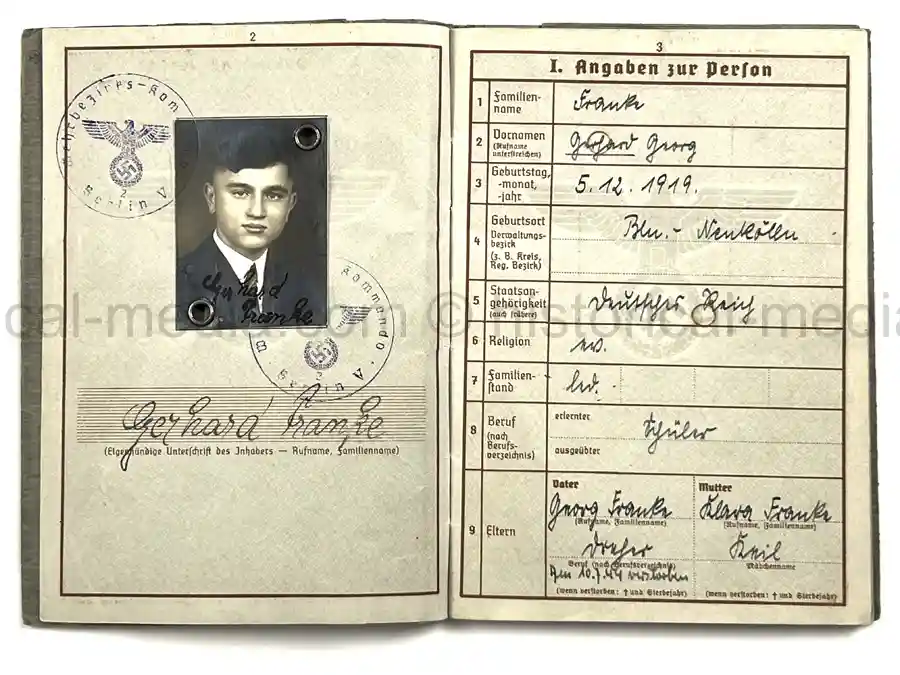 2
Wehrbezirks-Kom
Berlin V
2
Gerhard
Franke
Kommando
Berlin V
2
Gerhard Franke
(Eigenhändige Unterschrift des Inhabers — Rufname, Familienname)
3
I. Angaben zur Person
1 Familien-
name
Franke
2 Vornamen
(Rufname
unterstreichen)
Gerhard Georg
3 Geburtstag,
-monat,
-jahr
5.12.1919.
4 Geburtsort
Verwaltungs-
bezirk
(z. B. Kreis,
Reg. Bezirk)
Bln.- Neukölln
5 Staatsan-
gehörigkeit
(auch frühere)
Deutsches Reich
6 Religion
ev.
7 Familien-
stand
led.
8 Beruf
(nach
Berufs-
verzeichnis)
erlernter
Schüler
ausgeübter
9 Eltern
Vater
Georg Franke
(Rufname, Familienname)
Dreher
Beruf (nach Berufsverzeichnis)
Am 10.7.44 verstorben
(wenn verstorben: † und Sterbejahr)
Mutter
Klara Franke
(Rufname, Familienname)
Keil
Mädchenname
(wenn verstorben: † und Sterbejahr)
cal-media.com © historical-media